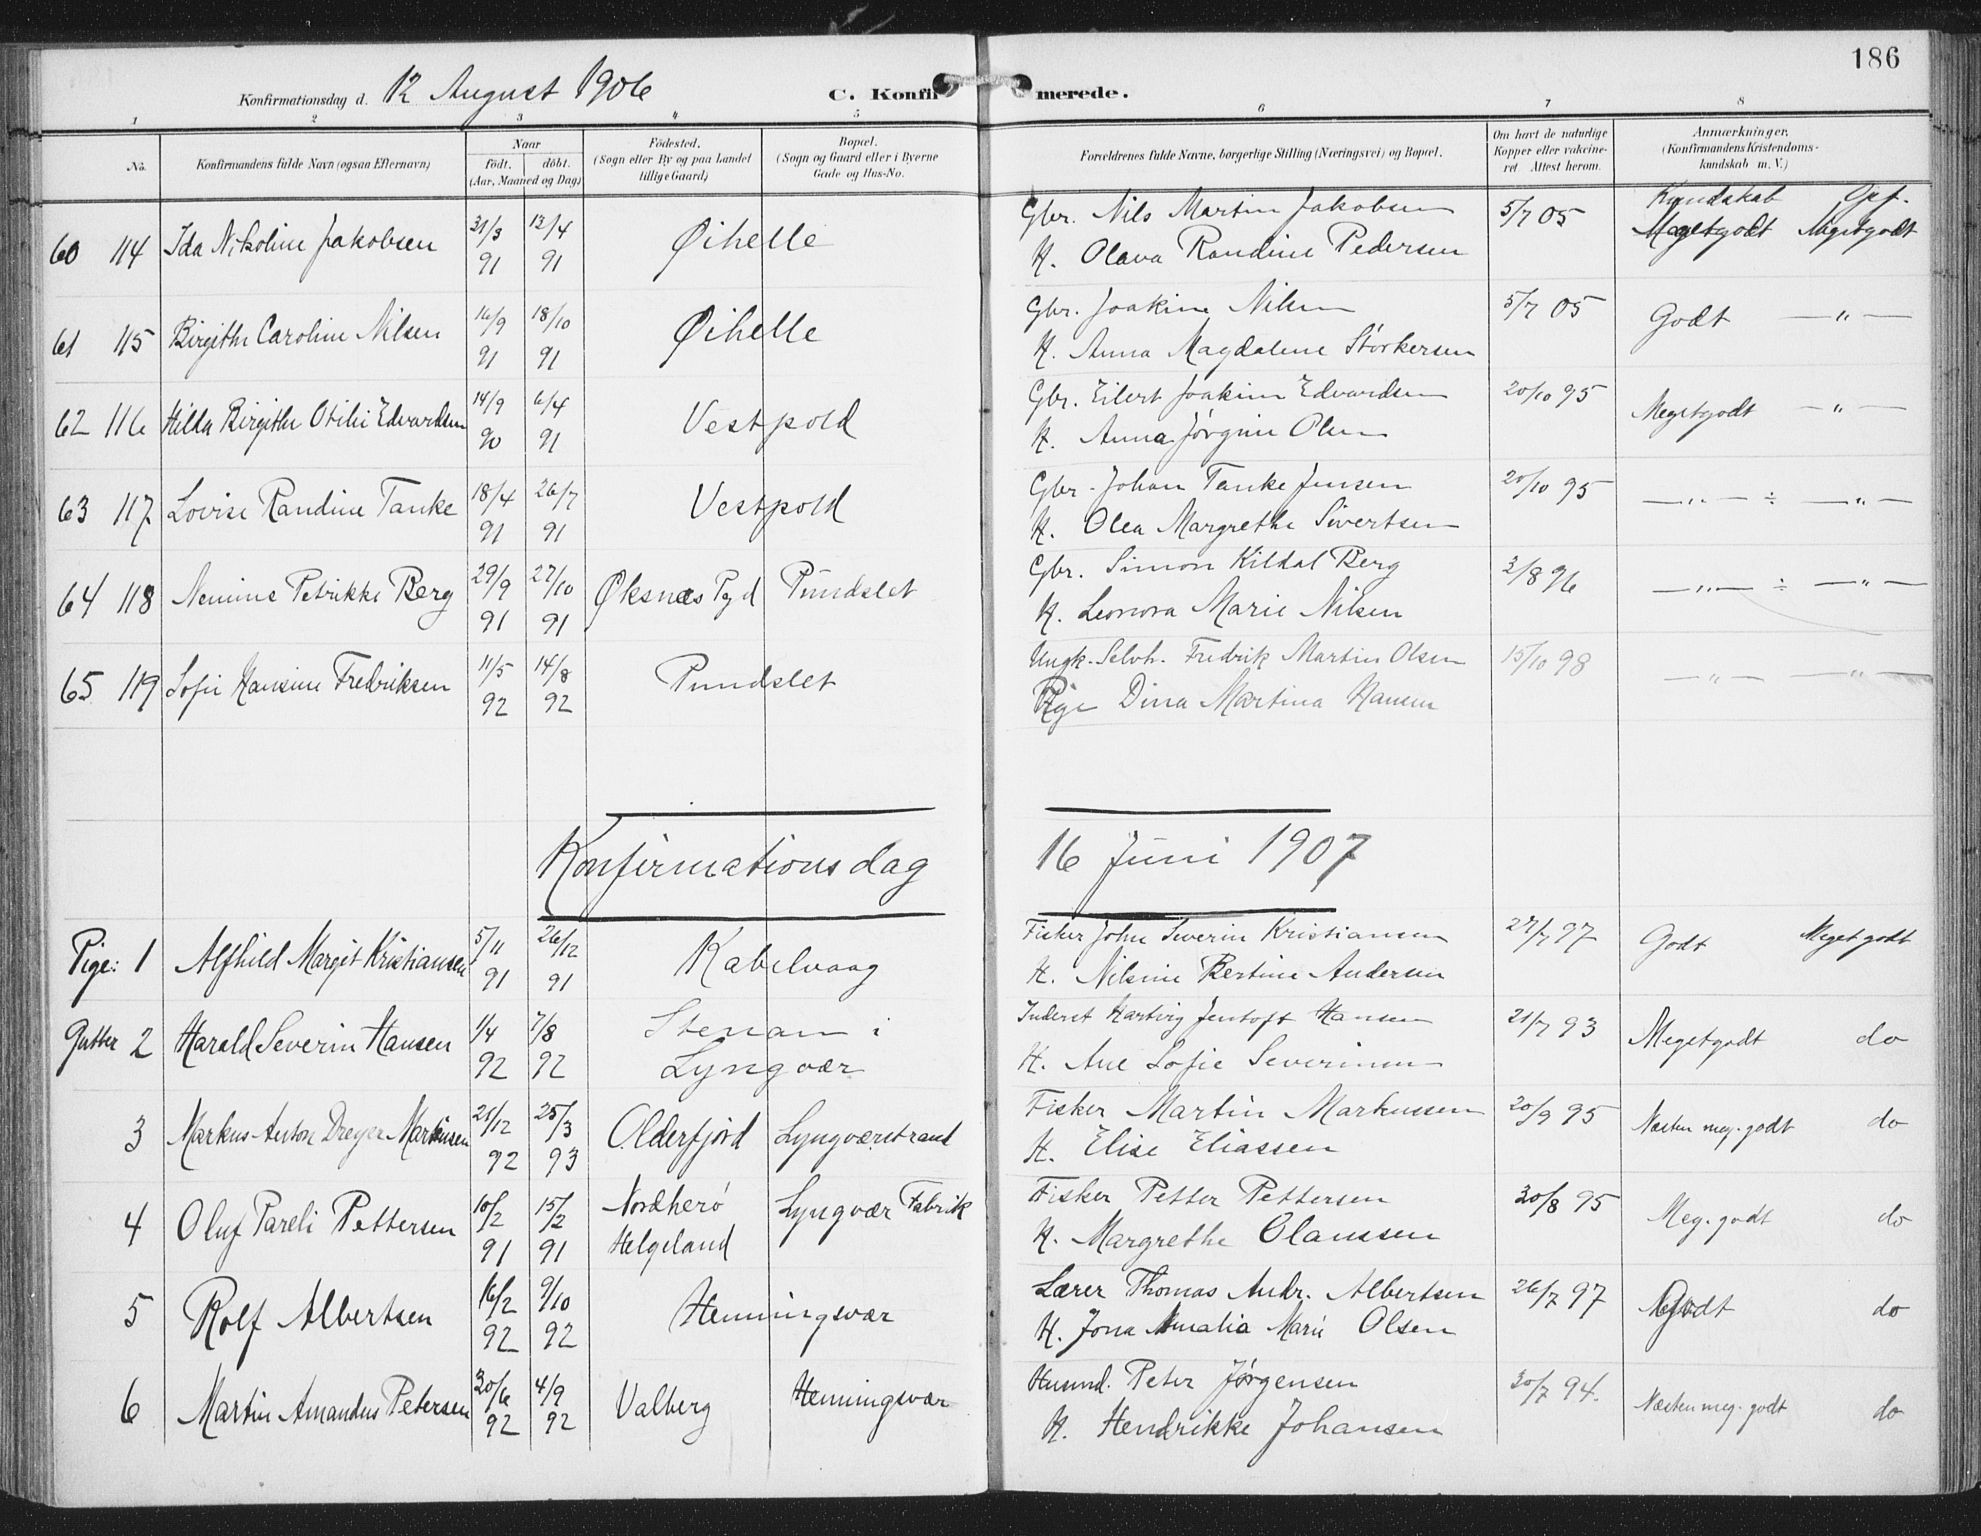 186
Konfirmationsdag d. 12 August 1906 C. Konfirmerede.
1 2 3 4 5 6 7 8
No. Konfirmandens fulde Navn (ogsaa Efternavn) Naar födt. döbt. (Aar, Maaned og Dag) Födested. (Sogn eller By og paa Landet tillige Gaard) Bopæl. (Sogn og Gaard eller i Byerne Gade og Hus-No. Forældrenes fulde Navne, borgerlige Stilling (Næringsvei) og Bopæl. Om havt de naturlige Kopper eller vakcineret. Attest herom. Anmærkninger. (Konfirmandens Kristendomskundskab m. V.)
Kundskab Opf.
60 114 Ida Nikoline Jakobsen 31/3 91 12/4 91 Øihelle Gbr. Nils Martin Jakobsen 5/7 05 Megetgodt Megetgodt
H. Olava Randine Pedersen
61 115 Birgithe Caroline Nilsen 16/9 91 18/10 91 Øihelle Gbr. Joakim Nilsen 5/7 05 Godt — " —
H. Anna Magdalene Storkersen
62 116 Hilda Birgithe Otilie Edvardsen 14/9 90 6/4 91 Vestpold Gbr. Eilert Joakim Edvardsen 20/10 95 Megetgodt — " —
H. Anna Jørgine Olsen
63 117 Lovise Randine Tanke 18/4 91 26/7 91 Vestpold Gbr. Johan Tanke Jensen 20/10 95 — " — ÷ — " —
H. Olea Margrethe Sivertsen
64 118 Nemine Petrikke Berg 29/9 91 27/10 91 Øksnæs Pgd Pundslet Gbr. Simon Kildal Berg 3/8 96 — " — ÷ — " —
H. Leonora Marie Nilsen
65 119 Sofie Hansine Fredriksen 11/5 92 14/8 92 Pundslet Ungk. Selvh. Fredrik Martin Olsen 15/10 98 — " — — " —
Pige Dina Martina Hansen
Konfirmationsdag 16 Juni 1907
Pige: 1 Alfhild Margit Kristiansen 5/11 91 26/12 91 Kabelvaag Fisker John Severin Kristiansen 27/7 97 Godt Meget godt
H. Nilsine Bertine Andersen
Gutter 2 Harald Severin Hansen 1/4 92 7/8 92 Stenan i Lyngvær Inderst Hartvig Jentoft Hansen 21/7 93 Megetgodt do
H. Ane Sofie Severinsen
3 Markus Anton Dreyer Markusen 21/12 92 25/3 93 Olderfjord Lyngværstrand Fisker Martin Markussen 20/9 95 Næsten meg. godt do
H. Elise Eliassen
4 Oluf Pareli Pettersen 10/2 91 15/2 91 Nordherø Helgeland Lyngvær Fabrik Fisker Petter Pettersen 30/8 95 Meg. godt do
H. Margrethe Olaussen
5 Rolf Albertsen 16/2 92 9/10 92 Henningsvær Lærer Thomas Andr. Albertsen 26/7 97 Godt do
H. Jona Amalia Marie Olsen
6 Martin Amandus Petersen 30/6 92 4/9 92 Valberg Henningsvær Husmd. Peter Jørgensen 30/7 94. Næsten meg. godt do
H. Hendrikke Johansen